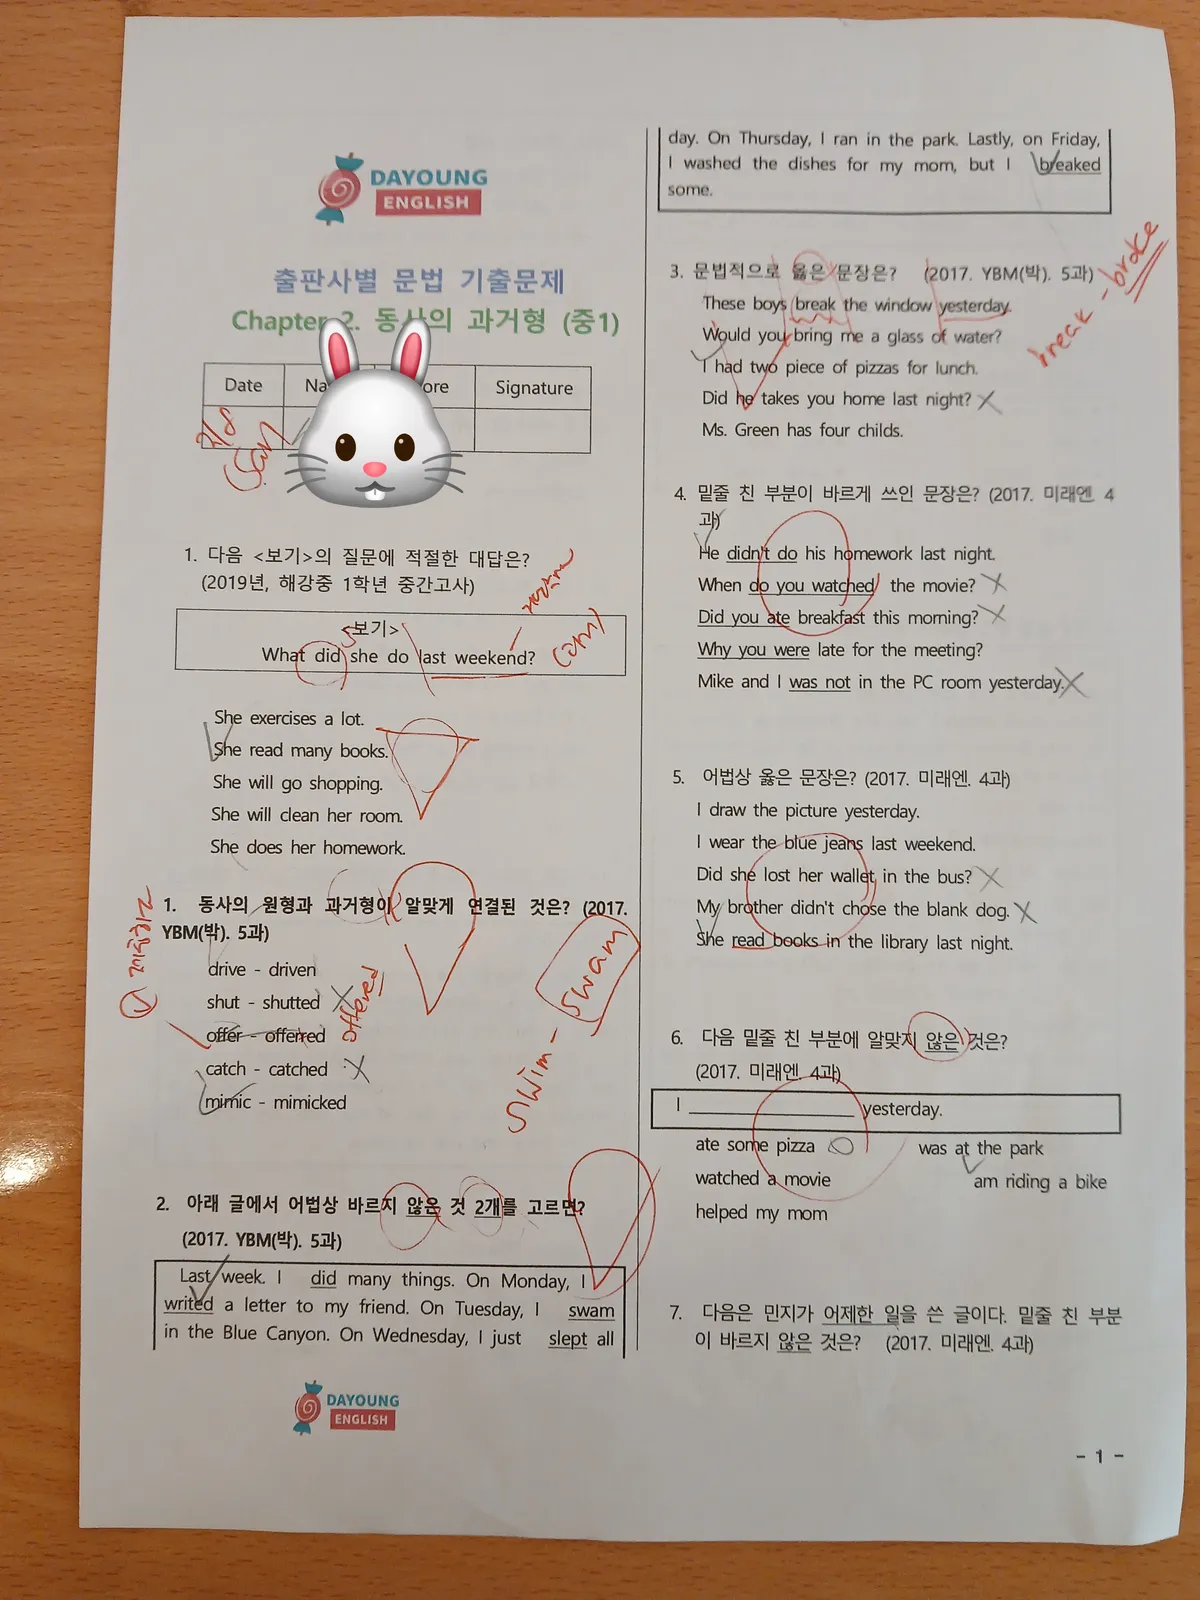 DAYOUNG
ENGLISH
출판사별 문법 기출문제
Chapter 2. 동사의 과거형 (중1)
Date Na ore Signature
1. 다음 <보기>의 질문에 적절한 대답은?
(2019년, 해강중 1학년 중간고사)
<보기>
What did she do last weekend?
She exercises a lot.
She read many books.
She will go shopping.
She will clean her room.
She does her homework.
1. 동사의 원형과 과거형이 알맞게 연결된 것은? (2017.
YBM(박). 5과)
drive - driven
shut - shutted
offer - offerred
offered
catch - catched
mimic - mimicked
swim - swam
2. 아래 글에서 어법상 바르지 않은 것 2개를 고르면?
(2017. YBM(박). 5과)
Last week. I did many things. On Monday, I
writed a letter to my friend. On Tuesday, I swam
in the Blue Canyon. On Wednesday, I just slept all
DAYOUNG
ENGLISH
day. On Thursday, I ran in the park. Lastly, on Friday,
I washed the dishes for my mom, but I breaked
some.
3. 문법적으로 옳은 문장은? (2017. YBM(박). 5과)
These boys break the window yesterday.
break - broke
Would you bring me a glass of water?
I had two piece of pizzas for lunch.
Did he takes you home last night?
Ms. Green has four childs.
4. 밑줄 친 부분이 바르게 쓰인 문장은? (2017. 미래엔. 4
과)
He didn't do his homework last night.
When do you watched the movie?
Did you ate breakfast this morning?
Why you were late for the meeting?
Mike and I was not in the PC room yesterday.
5. 어법상 옳은 문장은? (2017. 미래엔. 4과)
I draw the picture yesterday.
I wear the blue jeans last weekend.
Did she lost her wallet in the bus?
My brother didn't chose the blank dog.
She read books in the library last night.
6. 다음 밑줄 친 부분에 알맞지 않은 것은?
(2017. 미래엔. 4과)
I ________________ yesterday.
ate some pizza was at the park
watched a movie am riding a bike
helped my mom
7. 다음은 민지가 어제한 일을 쓴 글이다. 밑줄 친 부분
이 바르지 않은 것은? (2017. 미래엔. 4과)
- 1 -